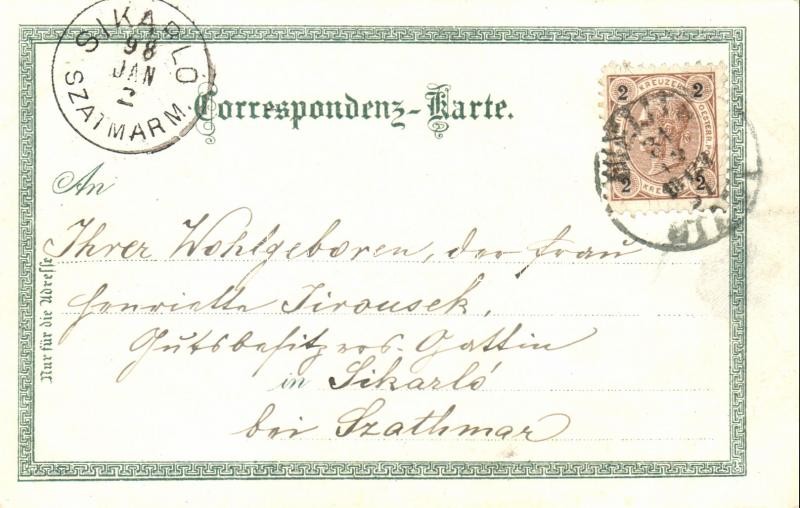 SIKARLÓ
98
JAN
2
SZATMÁRM.
Correspondenz-Karte.
2 KREUZER 2
2 KREUZER 2
An
Ihrer Wohlgeboren, der Frau
Henriette Jirousek,
Gutsbesitzers-Gattin
in Sikarló
bei Szathmar
Nur für die Adresse